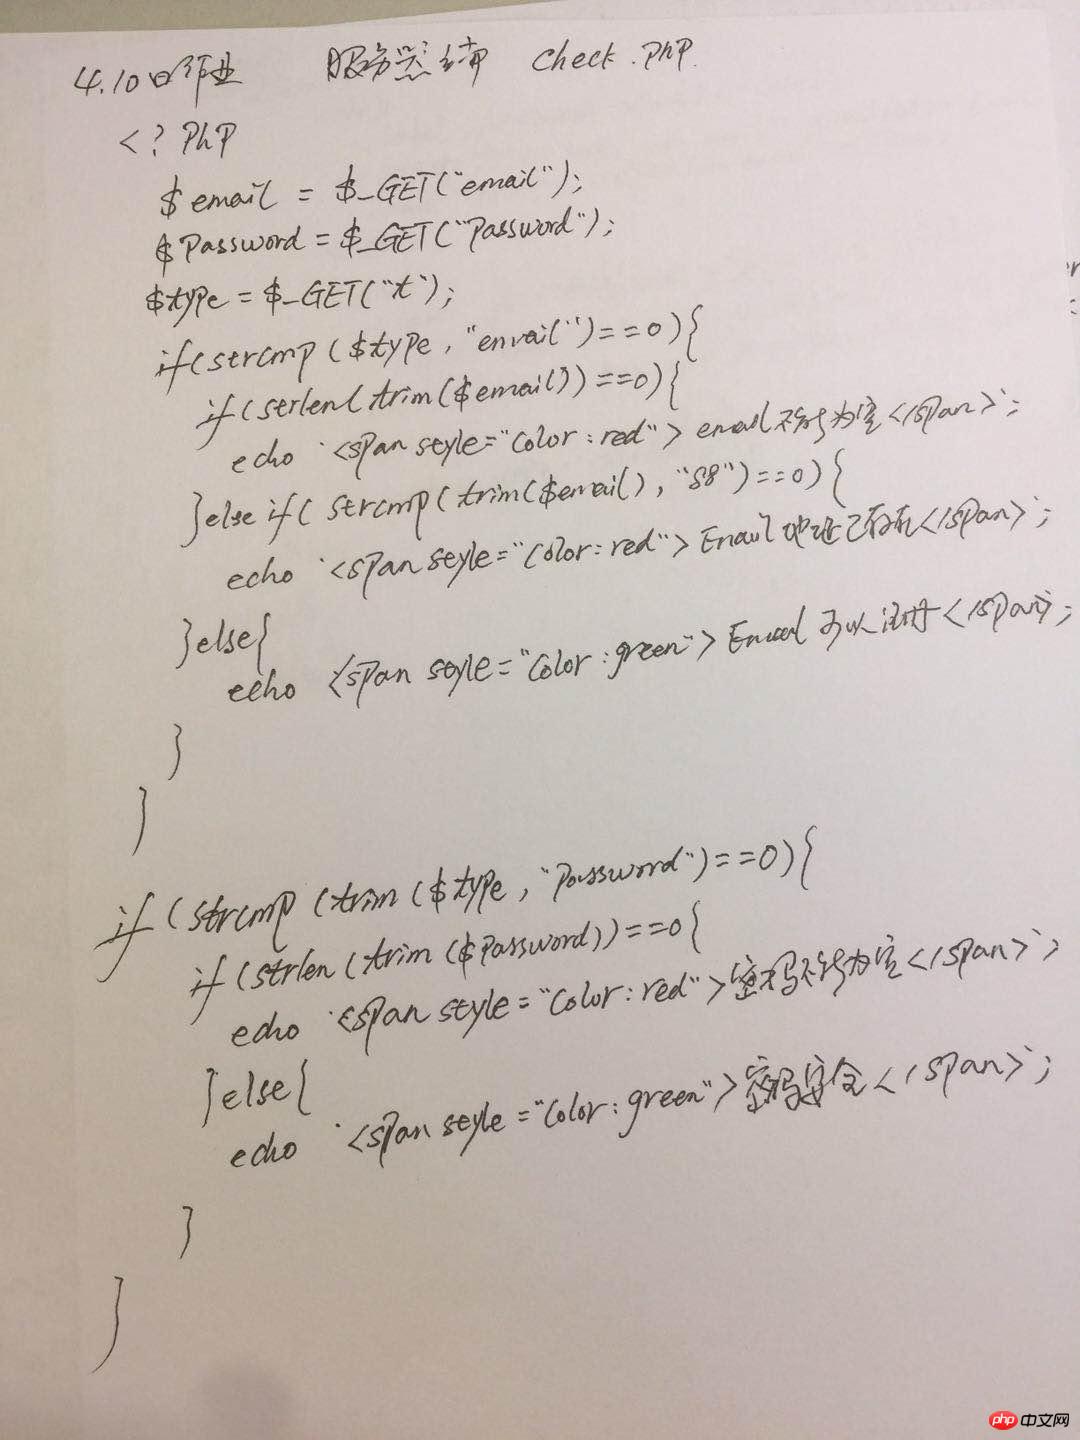 4.10日作业 服务器端 check.php
<?php
$email = $_GET("email");
$password = $_GET("password");
$type = $_GET("t");
if(strcmp($type, "email")==0){
if(strlen(trim($email))==0){
echo '<span style="color:red">email不能为空</span>';
}else if(strcmp(trim($email), "88")==0){
echo '<span style="color:red">Email地址已存在</span>';
}else{
echo '<span style="color:green">Email可以注册</span>;
}
}
if(strcmp(trim($type, "password")==0){
if(strlen(trim($password))==0{
echo '<span style="color:red">密码不能为空</span>';
}else{
echo '<span style="color:green">密码安全</span>';
}
}
php 中文网